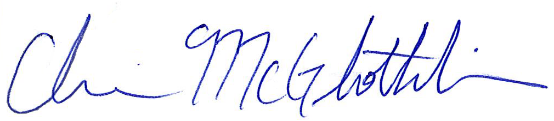 Chris McGlothlin